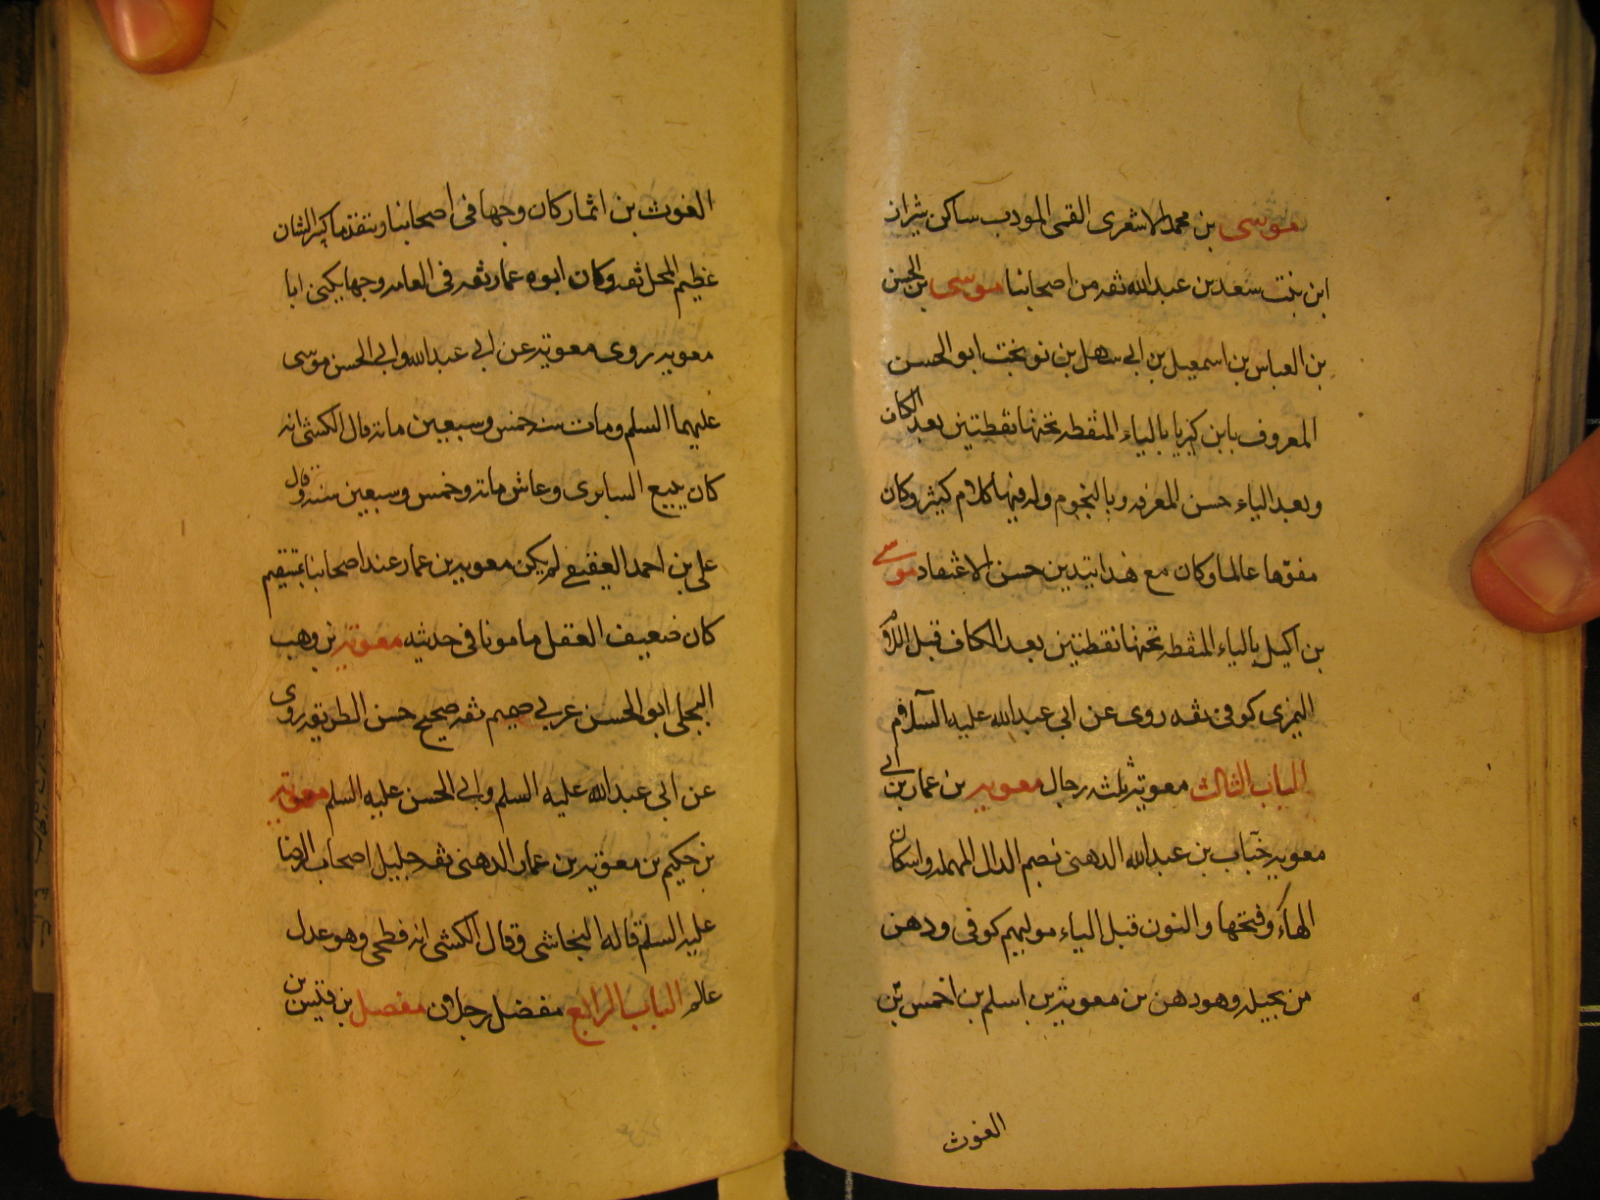 موسى بن محمد الاشعرى القمى المودب ساكن شيراز
ابن بنت سعد بن عبدالله ثقه من اصحابنا موسى بن الحسن
بن العباس بن اسمعيل بن ابى سهل بن نوبخت ابو الحسن
المعروف بابن كيريا بالياء المنقطه تحتها نقطتين بعد الكاف
وبعد الياء حسن المعرفه وبالنجوم وله فيها كلام كثير وكان
مفوها عالما وكان مع هذا يتدين حسن الاعتقاد موسى
بن اكيل بالياء المنقطه تحتها نقطتين بعد الكاف قبل اللام
النمرى كوفى ثقه روى عن ابى عبدالله عليه السلام
الباب الثالث معويه ثلثه رجال معويه بن عمار بن ابى
معويه خباب بن عبدالله الدهنى بضم الدال المهمله واسكان
الهاء وفتحها والنون قبل الياء موليهم كوفى ودهن
من بجيله وهو دهن بن معويه بن اسلم بن احمس بن
الغوث
الغوث بن انمار كان وجها فى اصحابنا ومتقدما كبير الشان
عظيم المحل ثقه وكان ابوه عمار ثقه فى العامه وجها يكنى ابا
معويه روى معويه عن ابى عبدالله وابى الحسن موسى
عليهما السلم ومات سنه خمس وسبعين مائه قال الكشى انه
كان يبيع السابرى وعاش مائه وخمس وسبعين سنه وقال
على بن احمد العقيقى لم يكن معويه بن عمار عند اصحابنا بمستقيم
كان ضعيف العقل مامونا فى حديثه معويه بن وهب
البجلى ابو الحسن عربى صميم ثقه صحيح حسن الطريقه روى
عن ابى عبدالله عليه السلم وابى الحسن عليه السلم معويه
بن حكيم بن معويه بن عمار الدهنى ثقه جليل اصحاب الرضا
عليه السلم قاله النجاشى وقال الكشى انه فطحى وهو عدل
عالم الباب الرابع مفضل رجلان مفضل بن قيس بن